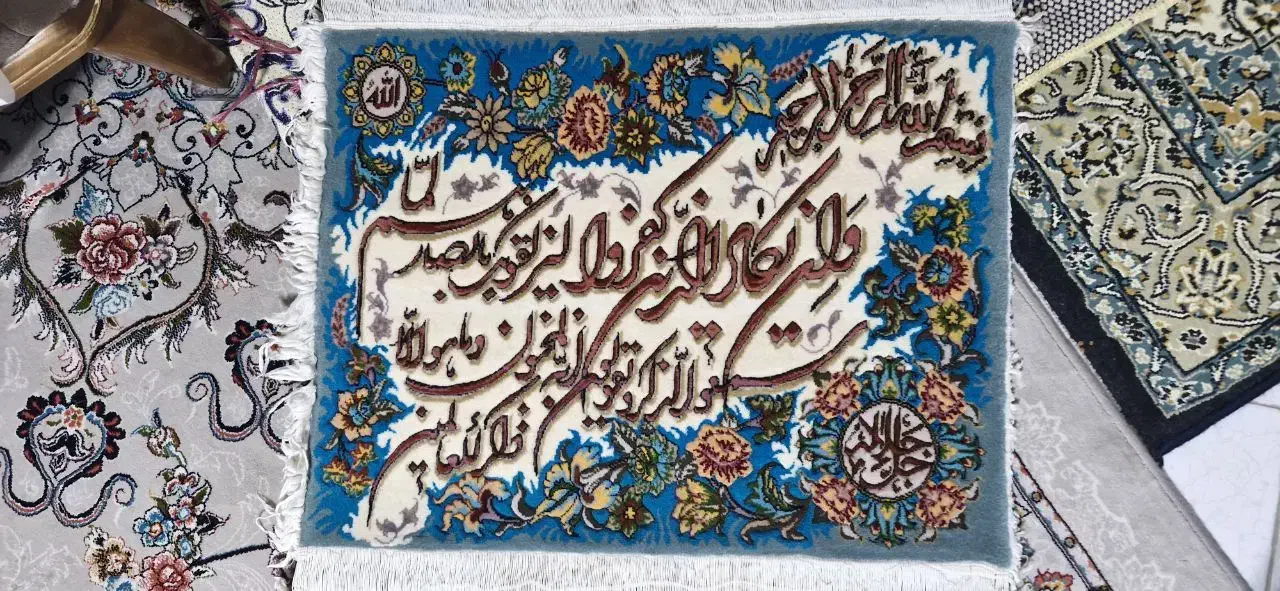 بسم الله الرحمن الرحیم
الله
وَإِن یَکَادُ الَّذِینَ کَفَرُوا لَیُزْلِقُونَکَ بِأَبْصَارِهِمْ لَمَّا
سَمِعُوا الذِّکْرَ وَیَقُولُونَ إِنَّهُ لَمَجْنُونٌ وَمَا هُوَ إِلَّا
ذِکْرٌ لِلْعَالَمِینَ
جل جلاله